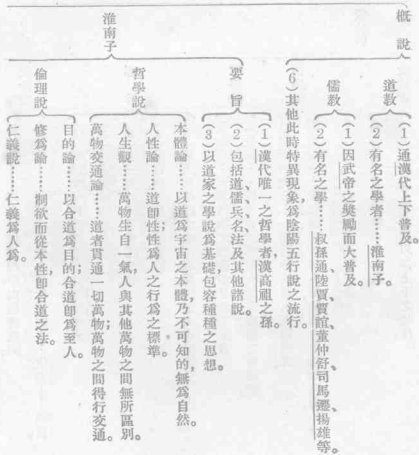 概說
道教
(1)通漢代上下普及。
(2)有名之學者……淮南子。
儒教
(1)因武帝之獎勵而大普及。
(2)有名之學……叔孫通、陸賈、賈誼、董仲舒、司馬遷、揚雄等。
(6)其他此時特異現象,爲陰陽五行說之流行。
淮南子
要旨
(1)漢代唯一之哲學者,漢高祖之孫。
(2)包括道、儒、兵、名、法及其他諸說。
(3)以道家之學說爲基礎,包容種種之思想。
哲學說
本體論……以道爲宇宙之本體,乃不可知的,無爲自然。
人性論……道卽性,性爲人之行爲之標準。
人生觀……萬物生自一氣,人與其他萬物之間無所區別。
萬物交通論……道者貫通一切萬物;萬物之間得行交通。
倫理說
目的論……以合道爲目的;合道卽爲至人。
修爲論……制欲而從本性,卽合道之法。
仁義說……仁義爲人爲。